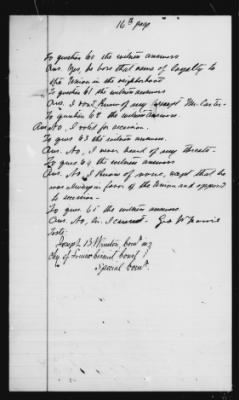 16th page
To question 60 the witness answers
Ans. Yes, he bore that name of loyalty to
the Union in the neighborhood
To question 61 the witness answers
Ans. I don't know of any except Mr. Carter.
To question 62 the witness answers.
Ans. No, I voted for secession.
To ques 63 the witness answers.
Ans. No, I never heard of any threats.
To ques 64 the witness answers
Ans. No, I know of none, except that he
was always in favor of the Union and opposed
to secession.
To ques. 65 the witness answers.
Ans. No, Sir, I cannot. Geo W
Teste:
Joseph B.
Clk of Circuit Court
Special Com.